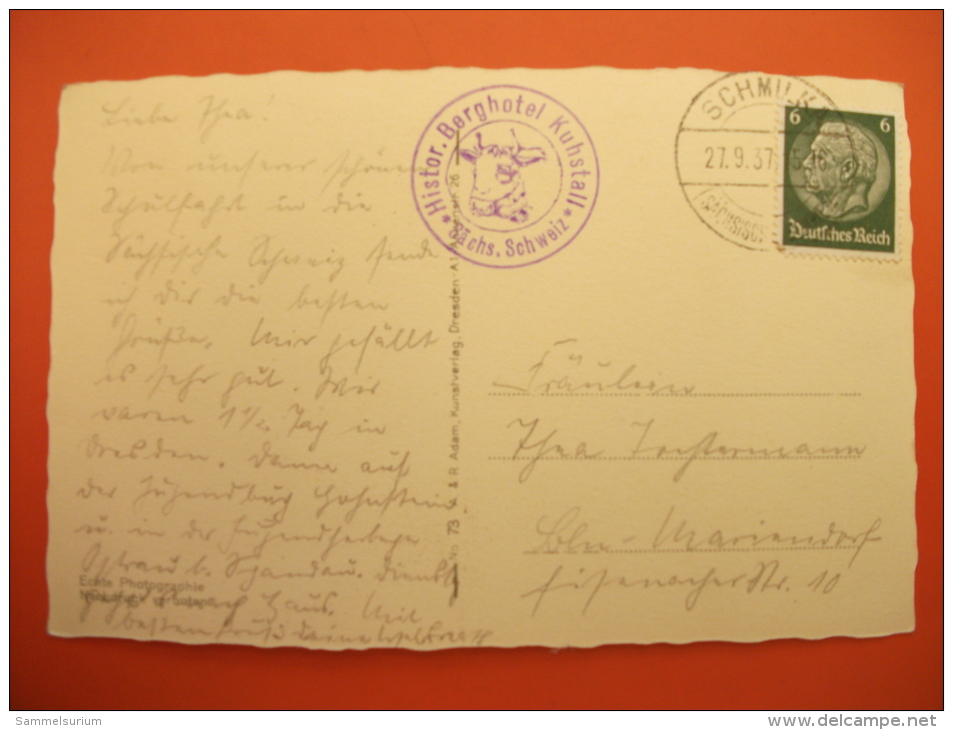 Liebe Thea!
Von unserer schönen
Schulfahrt in die
Sächsische Schweiz sende
ich dir die besten
Grüße. Mir gefällt
es sehr gut. Wir
waren 1 1/2 Tag in
Dresden. Dann auf
der Jugendburg Hohnstein
u. in der Jugendherberge
Ostrau b. Schandau. Dienst
nach Haus. Mit
besten Gruß Deine
Echte Photographie
Nachdruck verboten
Histor. Berghotel Kuhstall
* Sächs. Schweiz *
No 73 A. & R. Adam, Kunstverlag, Dresden-A1 26
SCHMILKA
27.9.37
(SÄCHSISCHE
6 6
Deutsches Reich
Fräulein
Thea
Bln-Mariendorf
Eisenacher Str. 10
Sammelsurium
www.delcampe.net